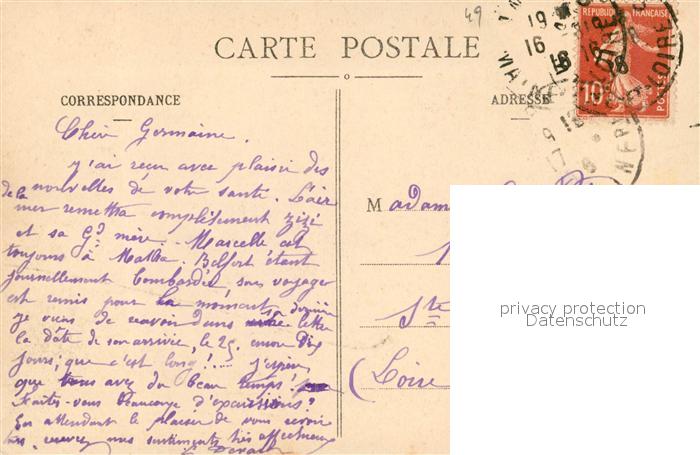 49
CARTE POSTALE
RÉPUBLIQUE FRANÇAISE
10
POSTES
CORRESPONDANCE
ADRESSE
Chère Germaine.
J'ai reçu avec plaisir des
nouvelles de votre santé. L'air
de la mer remettra complètement zizi
et sa Gd mère. Marcelle est
toujours à Matha. Belfort étant
journellement bombardé, son voyage
est remis pour le moment.
je viens de recevoir dans sa dernière lettre
la date de son arrivée, le 25. encore Dix
jours; que c'est long!.... j'espère
que vous avez du beau temps!
Faites-vous beaucoup d'excursions?
En attendant le plaisir de vous revoir
recevez nos sentiments très affectueux
Madame
Ste
(Loire
privacy protection
Datenschutz